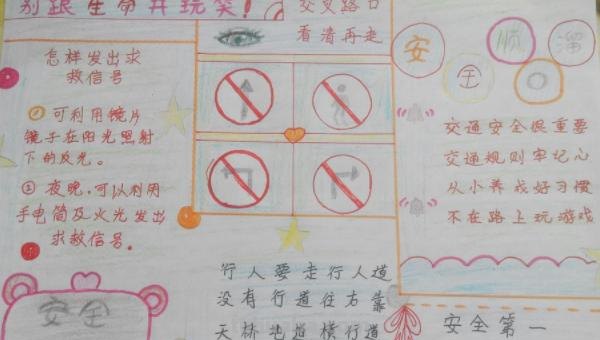 别跟生命开玩笑!
交叉路口
看清再走
怎样发出求
救信号
① 可利用镜片
镜子在阳光照射
下的反光。
② 夜晚,可以利用
手电筒及火光发出
求救信号。
安全
行人要走行人道
没有行道往右靠
天桥地道横行道
安
全
顺
溜
交通安全很重要
交通规则牢记心
从小养成好习惯
不在路上玩游戏
安全第一